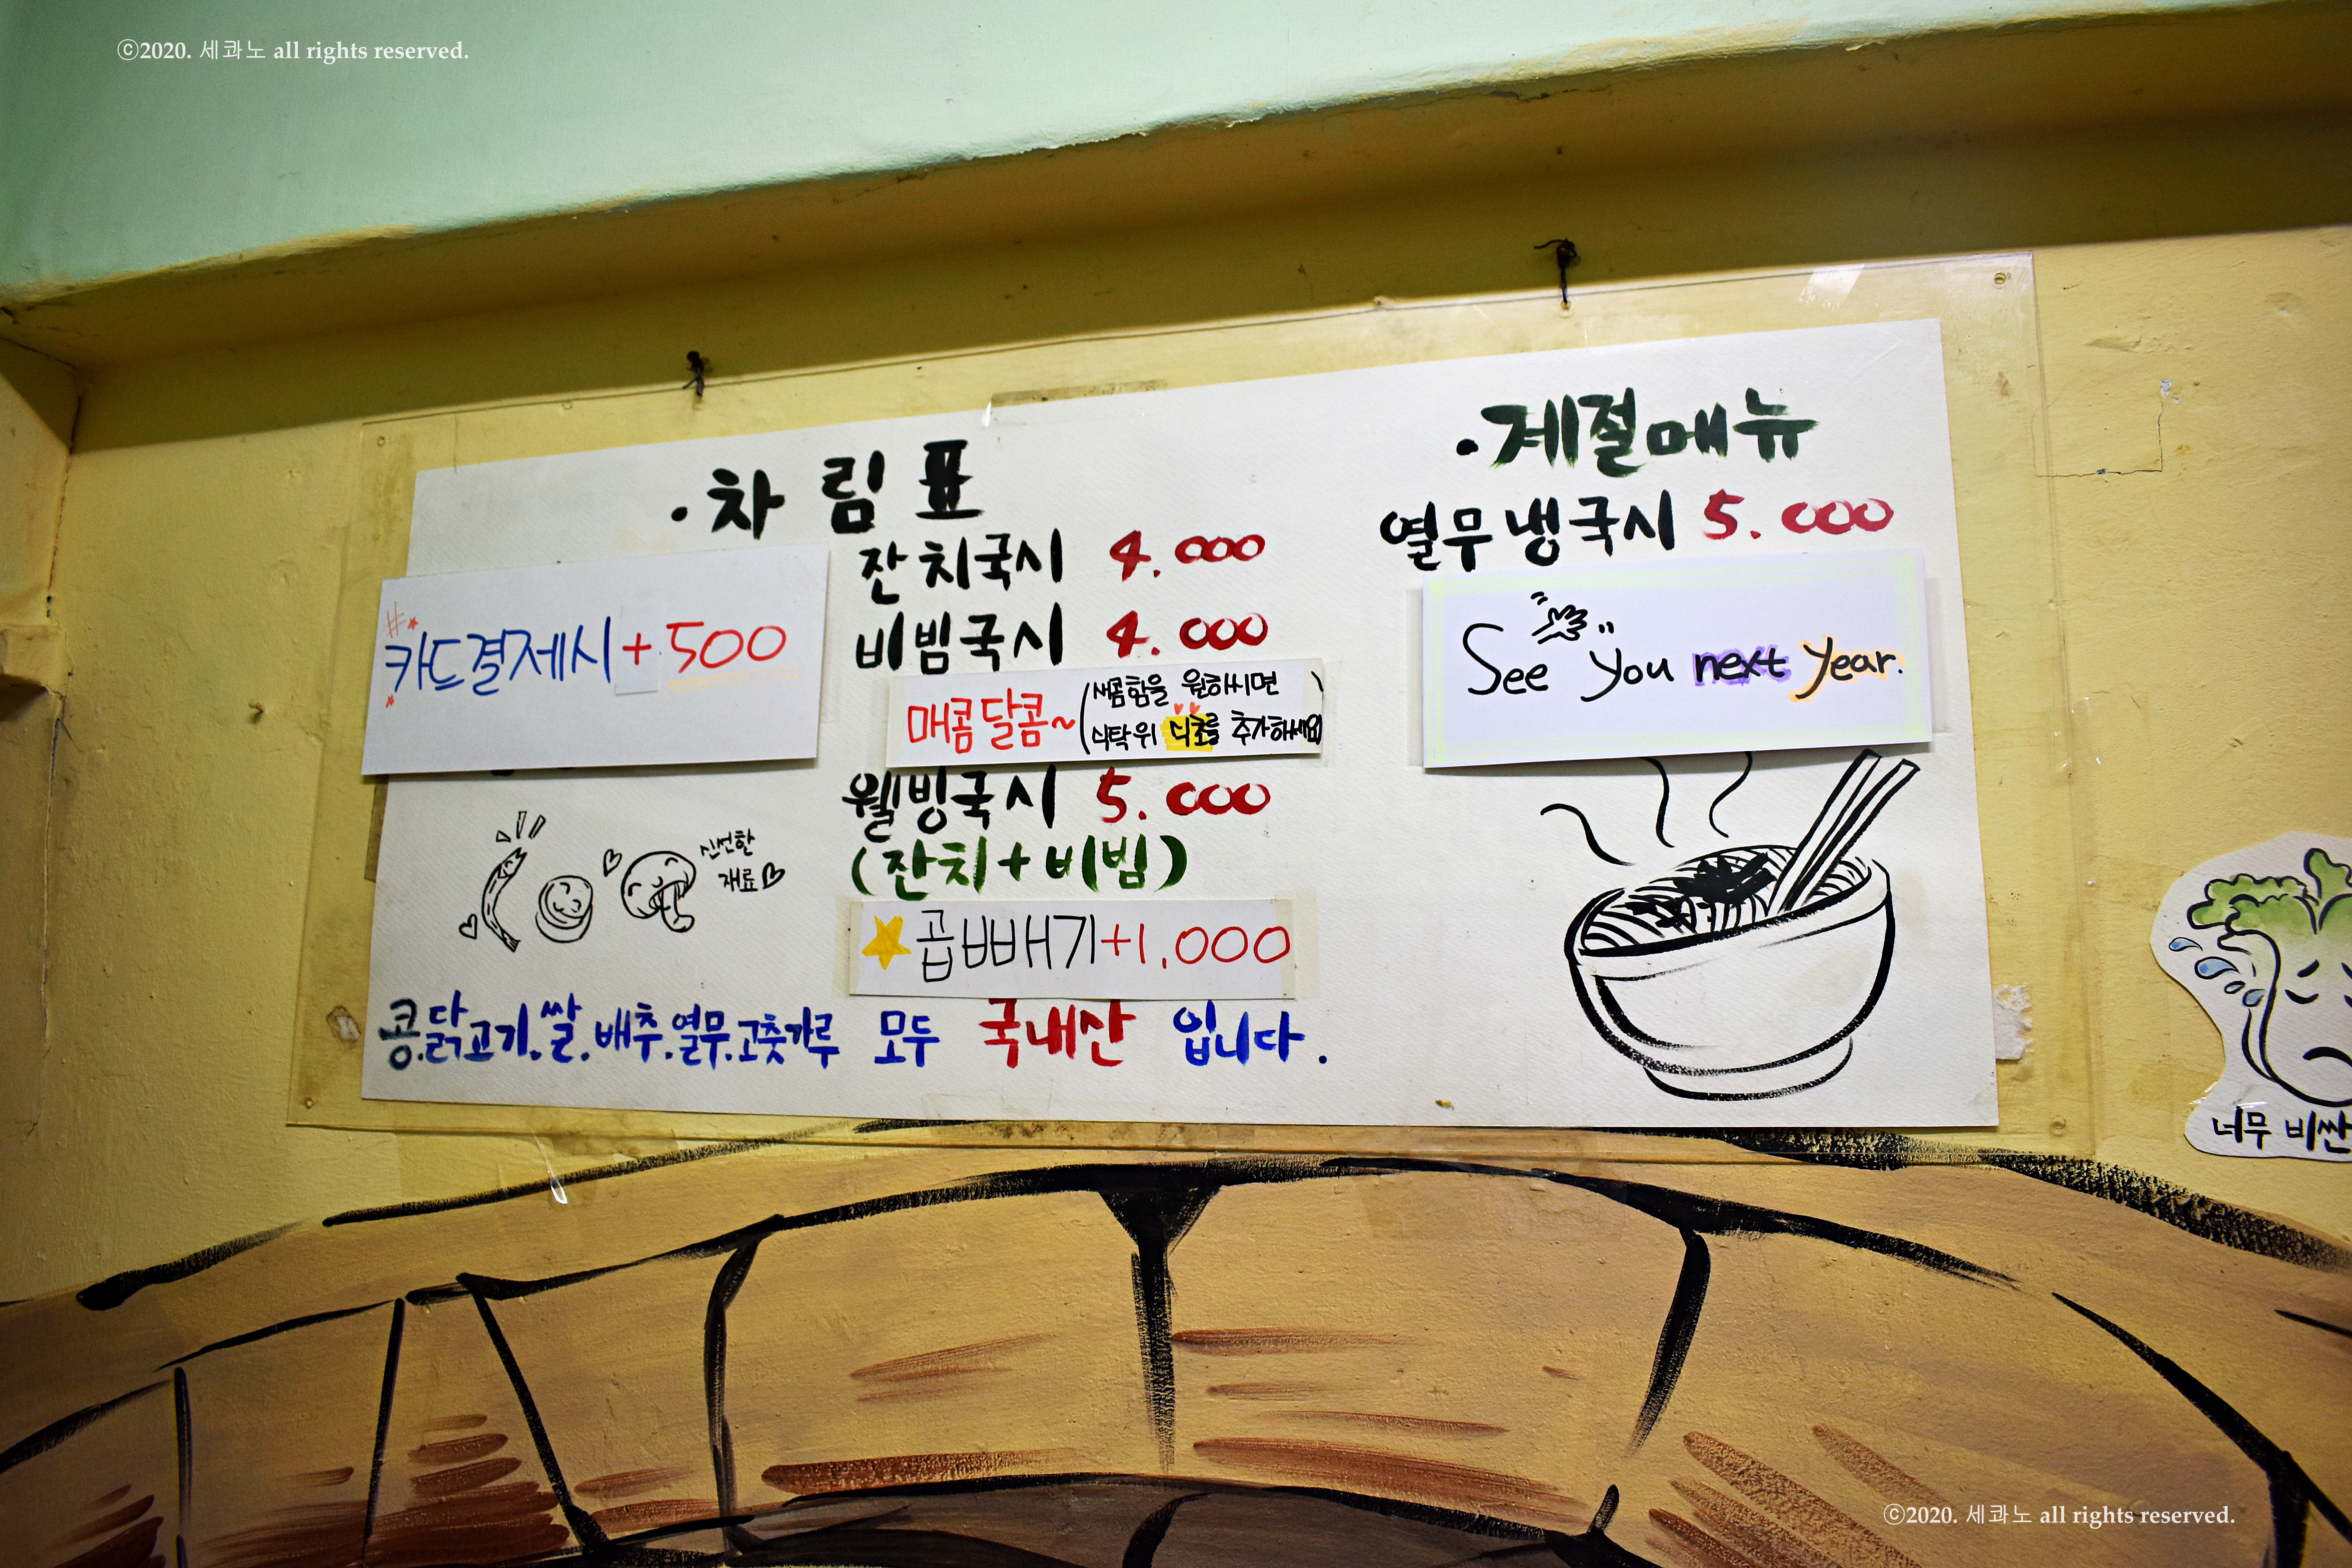 ⓒ2020. 세콰노 all rights reserved.
·차림표
잔치국시 4.000
비빔국시 4.000
매콤달콤~(새콤함을 원하시면
식탁위 식초를 추가하세요)
웰빙국시 5.000
(잔치+비빔)
곱빼기+1,000
카드결제시+500
신선한
재료
콩.닭고기.쌀.배추.열무.고춧가루 모두 국내산 입니다.
·계절메뉴
열무냉국시 5.000
See you next year.
너무 비싼
ⓒ2020. 세콰노 all rights reserved.